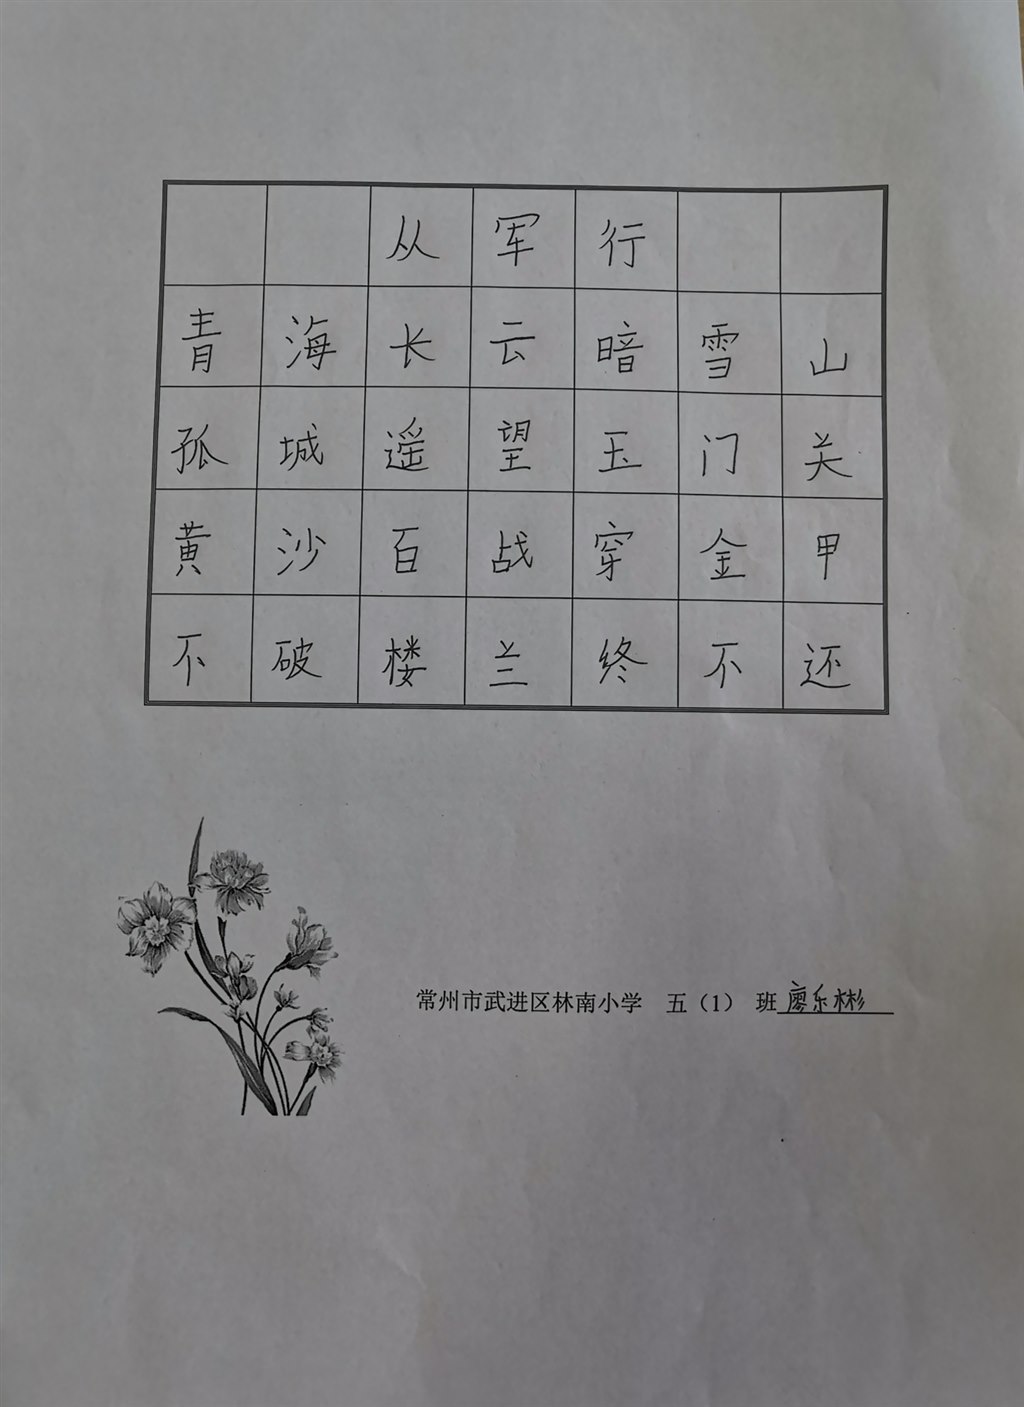 从军行
青海长云暗雪山
孤城遥望玉门关
黄沙百战穿金甲
不破楼兰终不还
常州市武进区林南小学 五（1） 班廖乐彬